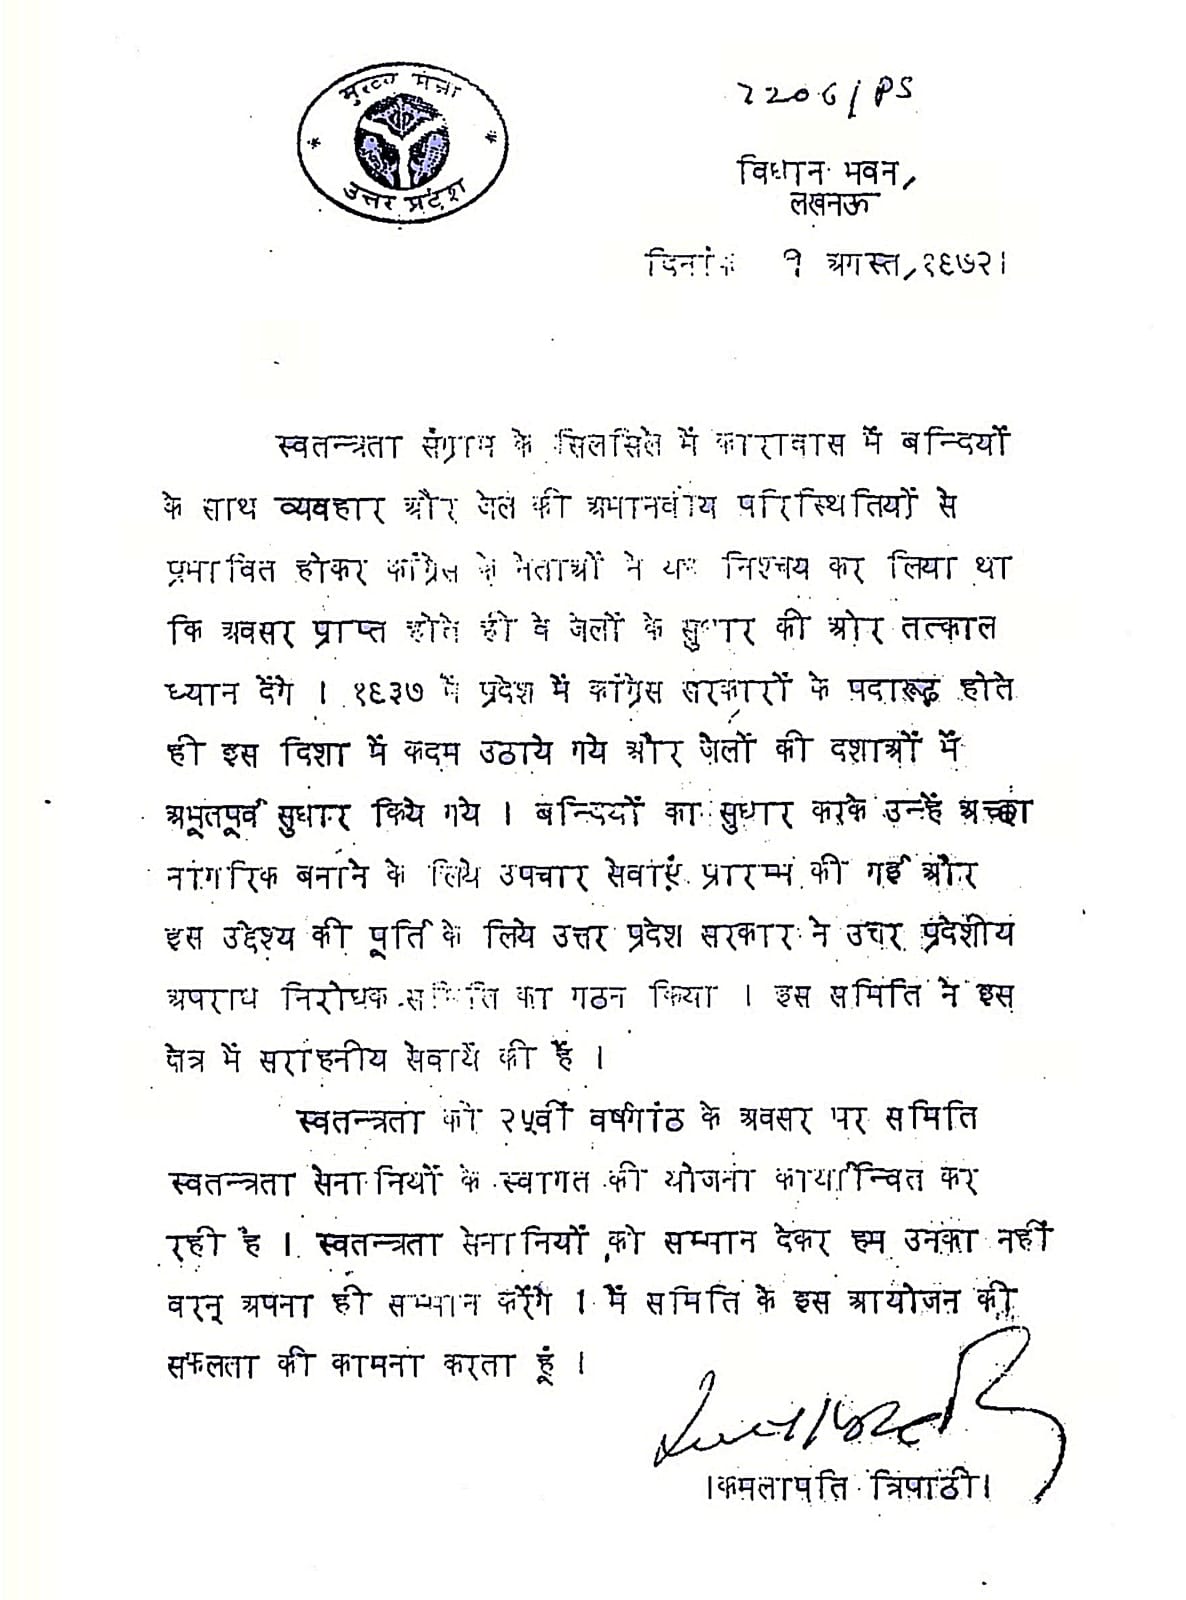 मुख्य मंत्री
उत्तर प्रदेश
2206/PS
विधान भवन,
लखनऊ
दिनांक १ अगस्त, १९७२।
स्वतन्त्रता संग्राम के सिलसिले में कारावास में बन्दियों
के साथ व्यवहार और जेल की अमानवीय परिस्थितियों से
प्रभावित होकर कांग्रेस के नेताओं ने यह निश्चय कर लिया था
कि अवसर प्राप्त होते ही वे जेलों के सुधार की ओर तत्काल
ध्यान देंगे । १९३७ में प्रदेश में कांग्रेस सरकारों के पदारूढ़ होते
ही इस दिशा में कदम उठाये गये और जेलों की दशाओं में
अभूतपूर्व सुधार किये गये । बन्दियों का सुधार करके उन्हें अच्छा
नागरिक बनाने के लिये उपचार सेवाएं प्रारम्भ की गई और
इस उद्देश्य की पूर्ति के लिये उत्तर प्रदेश सरकार ने उत्तर प्रदेशीय
अपराध निरोधक समिति का गठन किया । इस समिति ने इस
क्षेत्र में सराहनीय सेवायें की हैं ।
स्वतन्त्रता की २५वीं वर्षगांठ के अवसर पर समिति
स्वतन्त्रता सेनानियों के स्वागत की योजना कार्यान्वित कर
रही है । स्वतन्त्रता सेनानियों को सम्मान देकर हम उनका नहीं
वरन् अपना ही सम्मान करेंगे । मैं समिति के इस आयोजन की
सफलता की कामना करता हूं ।
।कमलापति त्रिपाठी।